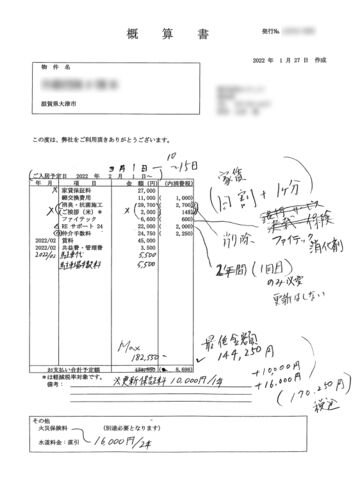 概算書
発行No.
2022年1月27日 作成
物件名
滋賀県大津市
この度は、弊社をご利用頂きありがとうございます。
3月1日〜 10〜15日
(ご入居予定日 2022年 2月 1日〜
年月 項目 金額(円) (内消費税)
家賃保証料 27,000
鍵交換費用 11,000 ( 1,000)
消臭・抗菌施工 (29,700) ( 2,700)
(ご挨拶(米)* ( 2,000) ( 148)
ファイテック 6,600 ( 600)
REサポート24 22,000 ( 2,000)
仲介手数料 24,750 ( 2,250)
2022/02 賃料 45,000
2022/02 共益費・管理費 3,500
2022/02 駐車代 5,500
5,500
家賃
日割+1ヶ分
削除
ファイテック
消化剤
2年間(1回目)
のみ必要
更新はしない
Max
182,550
最低金額
144,250円
+10,000円
+16,000円
(170,250円)
税込
お支払い合計予定額 8,698)
*は軽減税率対象です。
備考: 次更新保証料 10,000円/1年
その他
火災保険料 (別途必要となります)
水道料金:直引 16,000円/2年